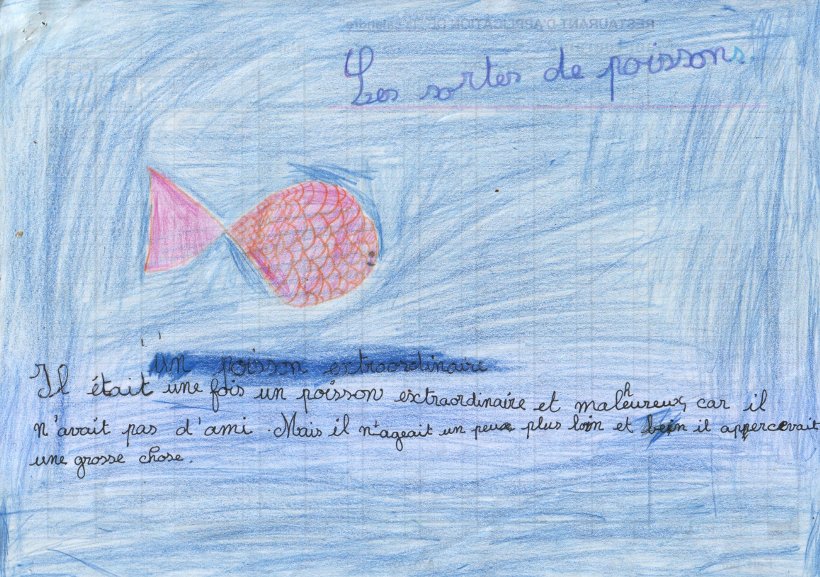 RESTAURANT D'APPLICATION DE
Les sortes de poissons.
un poisson extraordinaire
Il était une fois un poisson esctraordinaire et malhéureux, car il
n'avait pas d'ami. Mais il n'ageait un peux plus loin et been il appercevait
une grosse chose.